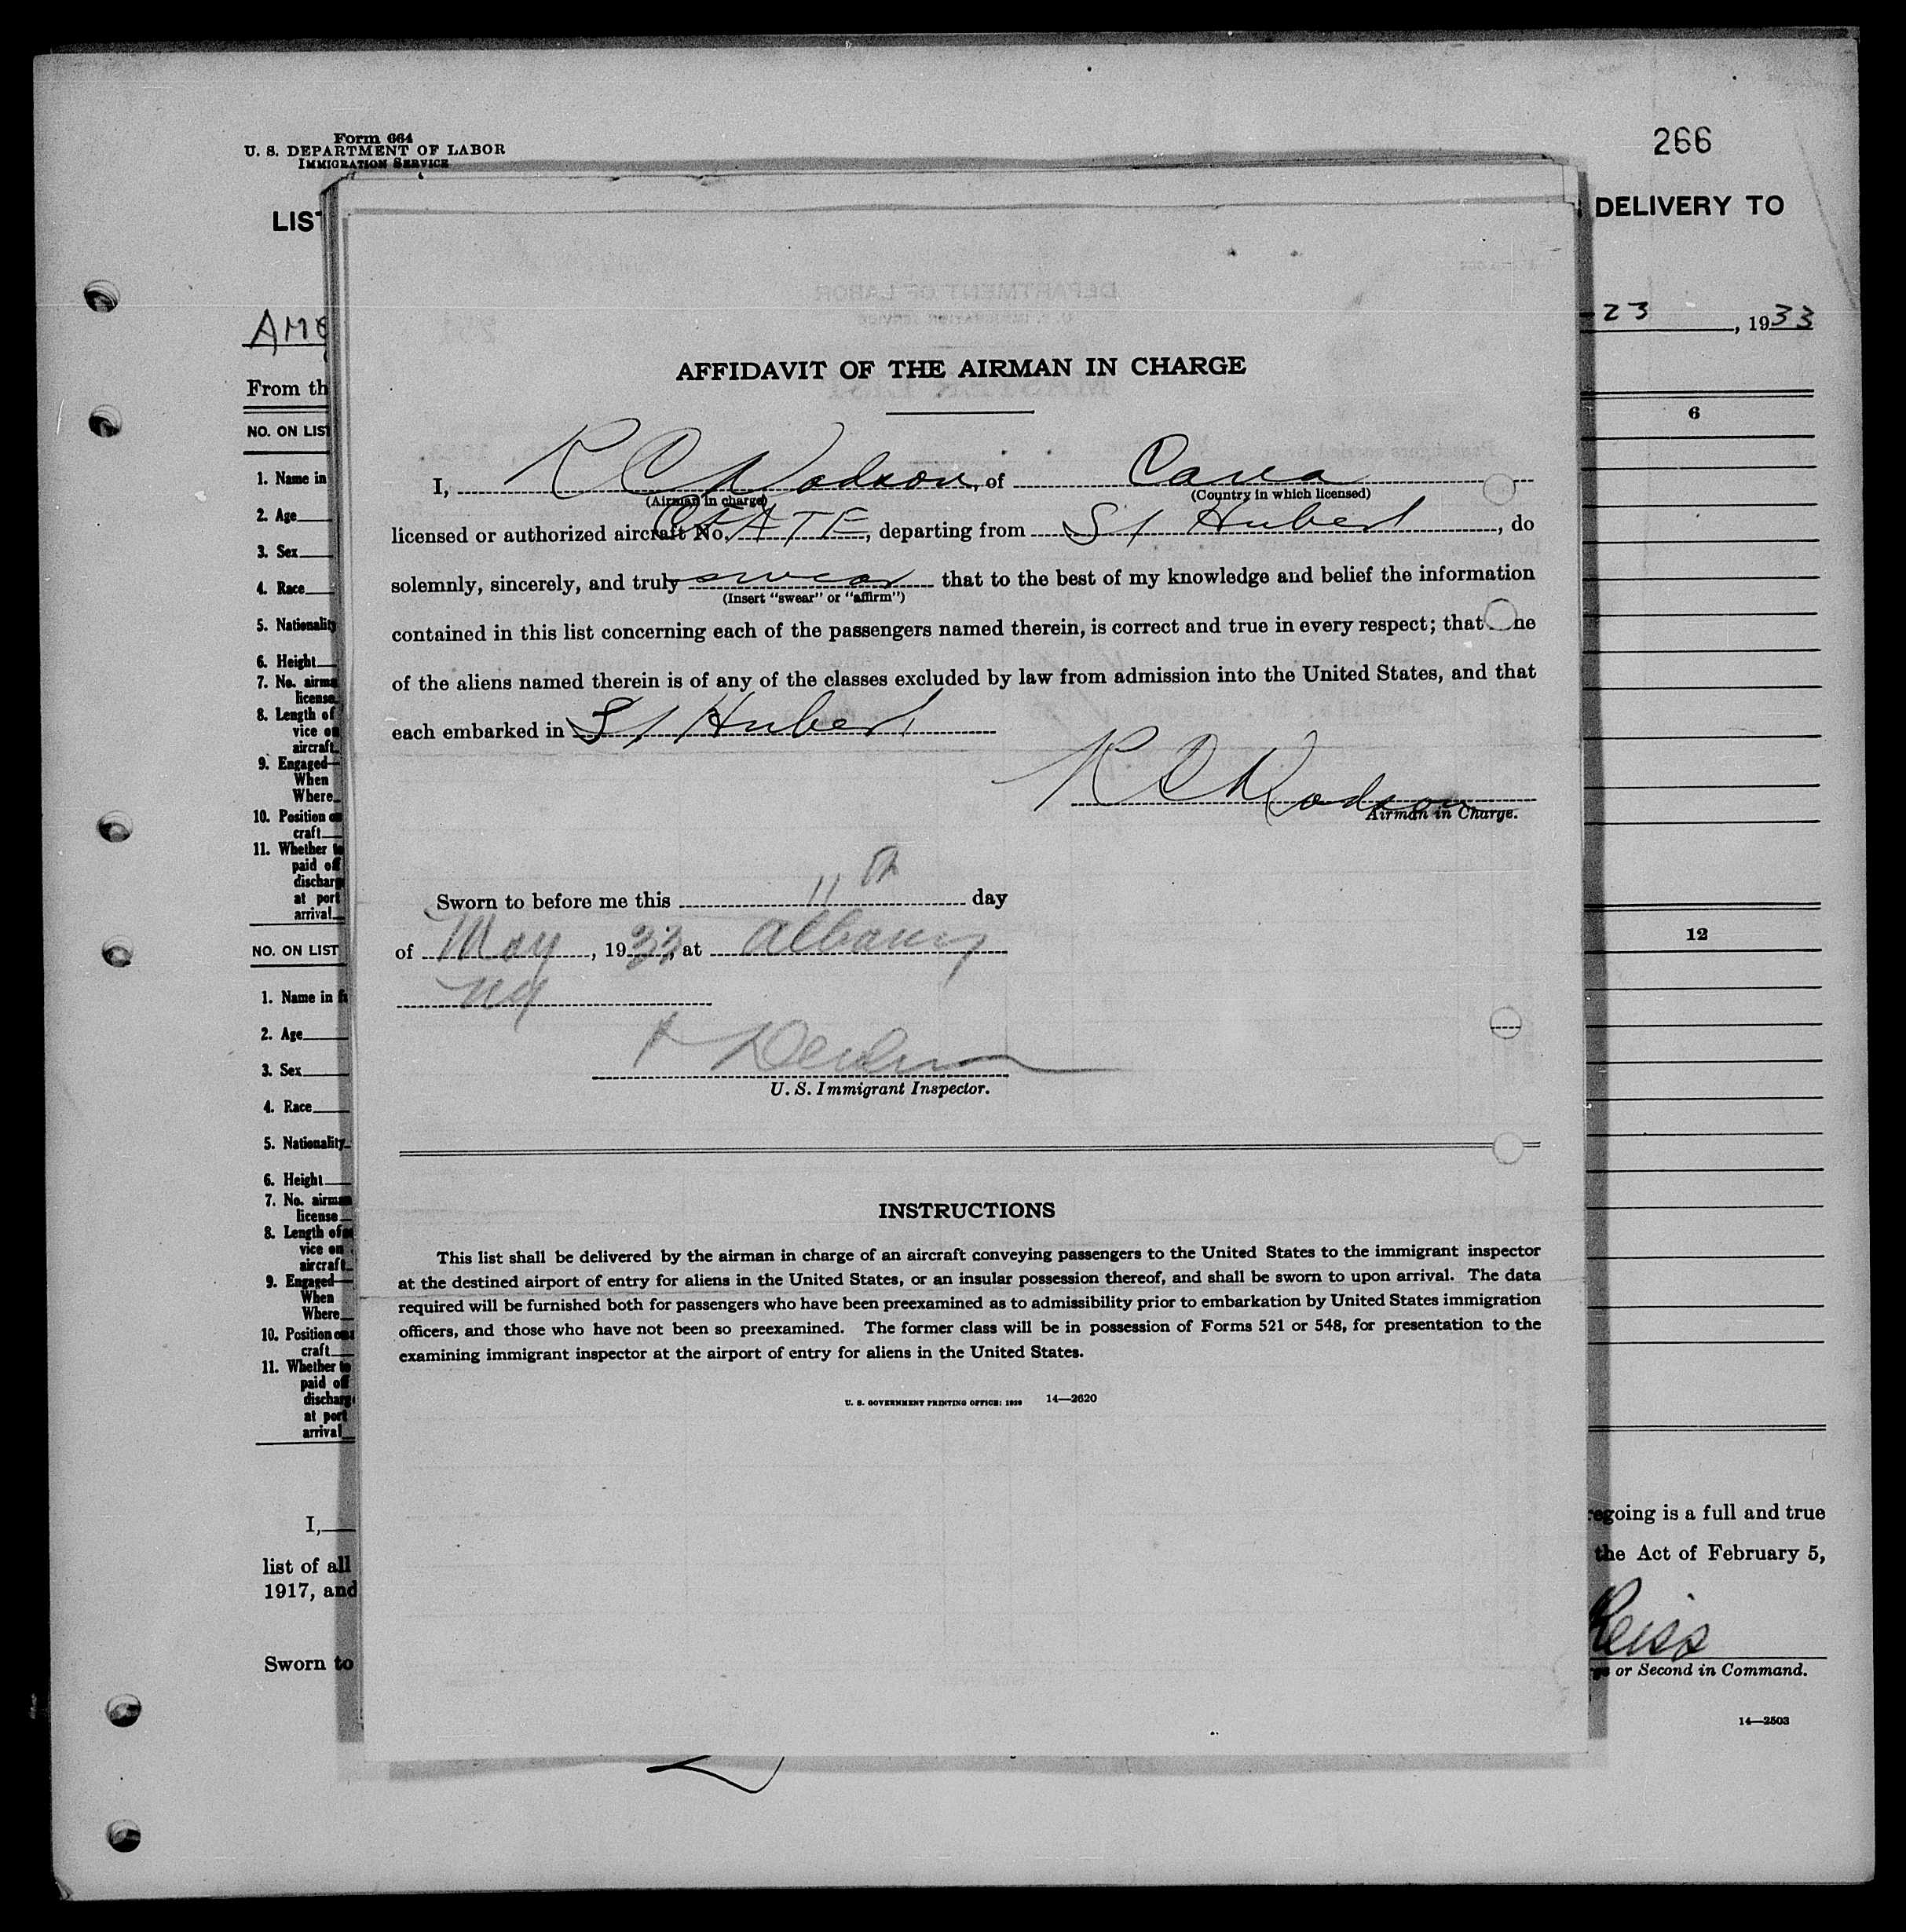 Form 664
U. S. DEPARTMENT OF LABOR
IMMIGRATION SERVICE
266
LIST
DELIVERY TO
AME
23, 1933
From th
NO. ON LIST
6
1. Name in
2. Age
3. Sex
4. Race
5. Nationality
6. Height
7. No. airma
license
8. Length of
vice on
aircraft
9. Engaged—
When
Where
10. Position on
craft
11. Whether to
paid off
discharg
at port
arrival
NO. ON LIST
12
1. Name in f
2. Age
3. Sex
4. Race
5. Nationality
6. Height
7. No. airman
license
8. Length of s
vice on
aircraft
9. Engaged—
When
Where
10. Position on a
craft
11. Whether to
paid off
discharg
at port
arrival
I,
egoing is a full and true
list of all
the Act of February 5,
1917, and
Reiss
Sworn to
or Second in Command.
14—2503
AFFIDAVIT OF THE AIRMAN IN CHARGE
I, R C Dodson, of Cana
(Airman in charge) (Country in which licensed)
licensed or authorized aircraft No. CFATE, departing from St Hubert, do
solemnly, sincerely, and truly swear that to the best of my knowledge and belief the information
(Insert "swear" or "affirm")
contained in this list concerning each of the passengers named therein, is correct and true in every respect; that ne
of the aliens named therein is of any of the classes excluded by law from admission into the United States, and that
each embarked in St Hubert
R C Dodson
Airman in Charge.
Sworn to before me this 11th day
of May, 1933, at Albany
NY
U. S. Immigrant Inspector.
INSTRUCTIONS
This list shall be delivered by the airman in charge of an aircraft conveying passengers to the United States to the immigrant inspector
at the destined airport of entry for aliens in the United States, or an insular possession thereof, and shall be sworn to upon arrival. The data
required will be furnished both for passengers who have been preexamined as to admissibility prior to embarkation by United States immigration
officers, and those who have not been so preexamined. The former class will be in possession of Forms 521 or 548, for presentation to the
examining immigrant inspector at the airport of entry for aliens in the United States.
U. S. GOVERNMENT PRINTING OFFICE: 1929 14—2620